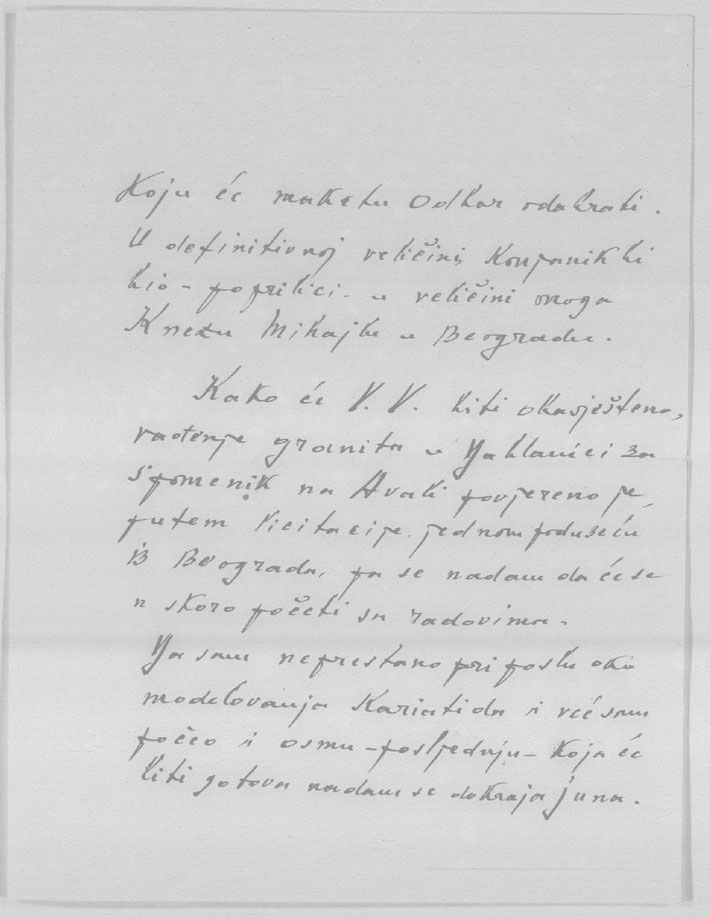 Koju će maketu Odbor odabrati.
U definitivnoj veličini, Konjanik bi
bio - po prilici - u veličini onoga
Knezu Mihajlu u Beogradu.
Kako će V. V. biti obavješteno,
vađenje granita u Jablanici za
spomenik na Avali povjereno je,
putem licitacije, jednom poduzeću
iz Beograda, pa se nadam da će se
u skoro početi sa radovima.
Ja sam neprestano pri poslu oko
modelovanja Kariatida i već sam
počeo i osmu - posljednju - Koja će
biti gotova nadam se do kraja juna.